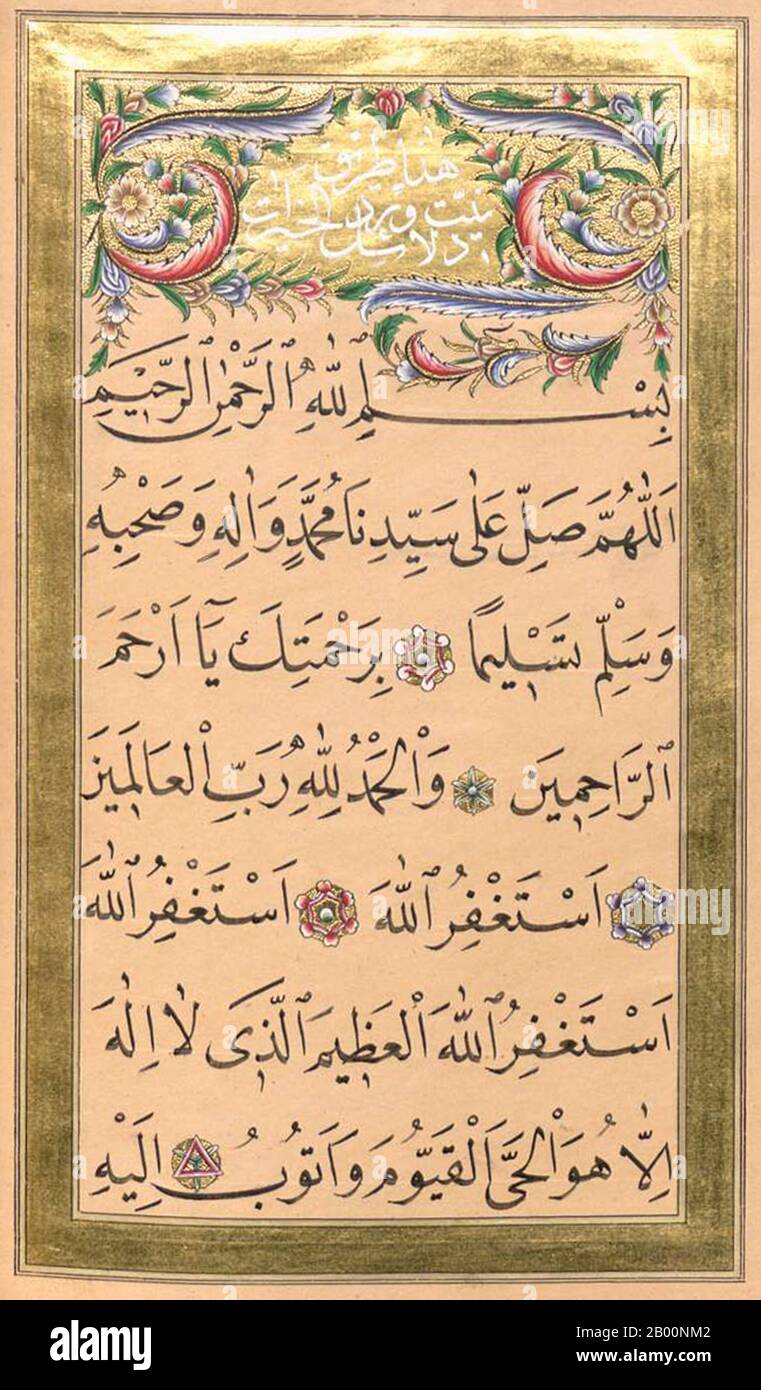 هذا طريق
نيت ورد
دلائل الخيرات
بِسْمِ اللهِ الرَّحْمٰنِ الرَّحِيمِ
اَللّٰهُمَّ صَلِّ عَلٰى سَيِّدِنَا مُحَمَّدٍ وَاٰلِهِ وَصَحْبِهِ
وَسَلِّمْ تَسْلِيمًا بِرَحْمَتِكَ يَآ اَرْحَمَ
الرَّاحِمِينَ وَالْحَمْدُ لِلّٰهِ رَبِّ الْعَالَمِينَ
اَسْتَغْفِرُ اللهَ اَسْتَغْفِرُ اللهَ
اَسْتَغْفِرُ اللهَ الْعَظِيمَ الَّذِى لَا اِلٰهَ
اِلَّا هُوَ الْحَىَّ الْقَيُّومَ وَاَتُوبُ اِلَيْهِ
alamy
alamy
Image ID: 2B00NM2
www.alamy.com